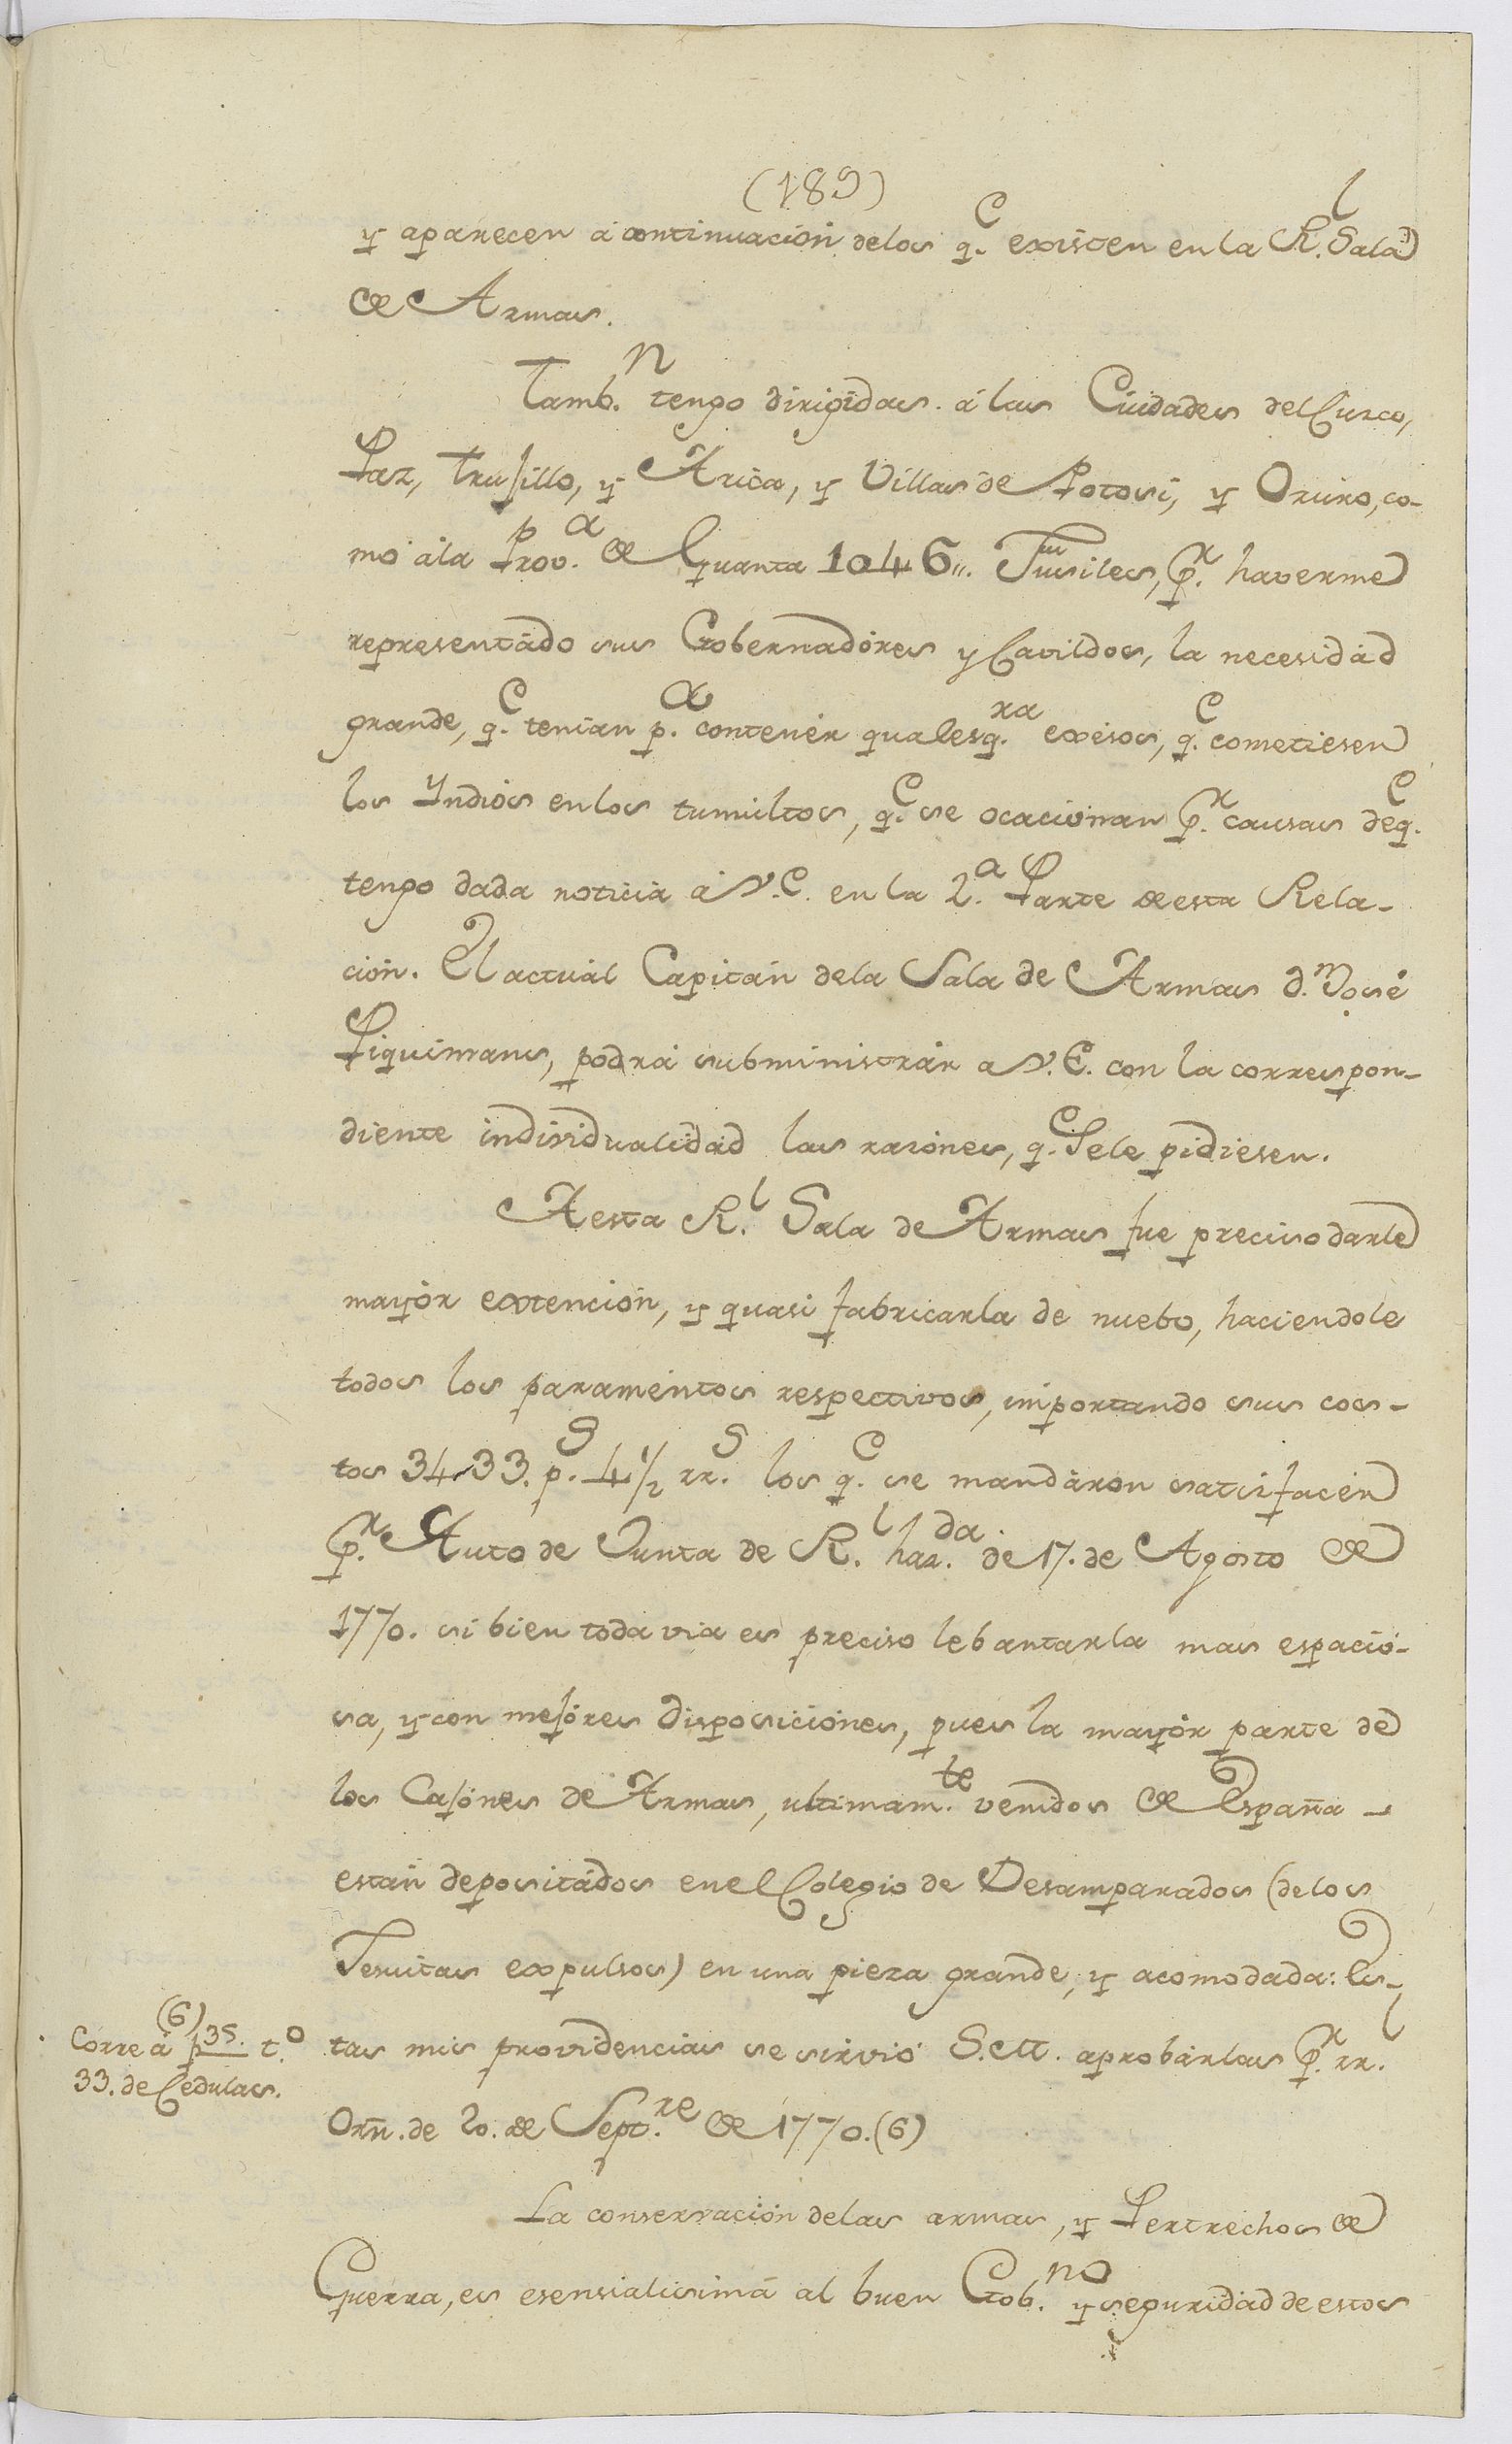 (189)
y aparecen á continuación delos q.e existen en la R.l Sala
de Armas.
Tamb.n tengo dirigidas á las Ciudades del Cuzco,
Paz, Trusillo, y Arica, y Villas de Potosi, y Oruro, co-
mo ála Prov.a de Guanta 1046,,. Fusiles, p.r haverme
representado sus Gobernadores y Cavildos, la necesidad
grande, q.e tenían p.a contener qualesq.ra exesos, q.e cometiesen
los Yndios en los tumultos, q.e se ocacionan p.r causas de q.e
tengo dada noticia á V.E. en la 2.a Parte de esta Rela-
ción. El actual Capitán dela Sala de Armas d.n José
Piquimans, podrá subministrár a V.E. con la correspon-
diente individualidad las razónes, q.e Se le pidiesen.
A esta R.l Sala de Armas fue preciso darle
mayór extención, y quasi fabricarla de nuebo, haciendole
todos los paramentos respectivos, importando sus cos-
tos 3433. p.s 4 1/2 rr.s los q.e se mandáron satisfacér
p.r Auto de Junta de R.l haz.da de 17. de Agosto de
1770. si bien toda via es preciso lebantarla mas espació-
sa, y con mejóres disposiciónes, pues la mayór parte de
los Cajónes de Armas, ultimam.te venidos de España -
están depositádos en el Colegio de Desamparados (delos
Jesuitas expulsos) en una pieza grande, y acomodada: Es-
tas mis providencias se sirvió S.M. aprobárlas p.r rr.l
Orñ. de 20. de Sept.re de 1770. (6)
(6)
Corre á f 35. t.o
33. de Cedulas.
La conservación delas armas, y Pertrechos de
Guerra, es esensialisima al buen Gob.no y seguridad de estos